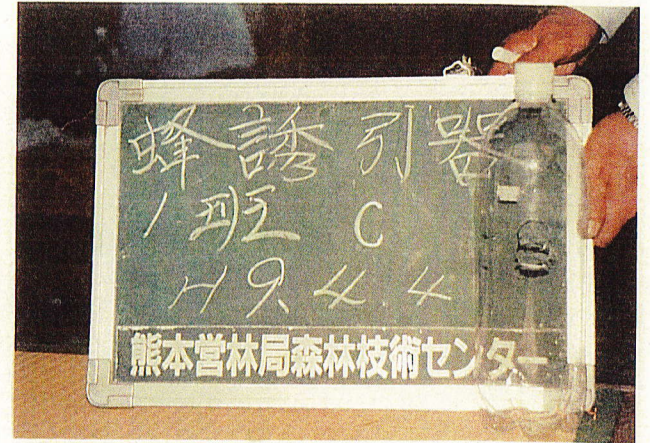 蜂誘引器
1班 C
H9.4.4
熊本営林局森林技術センター